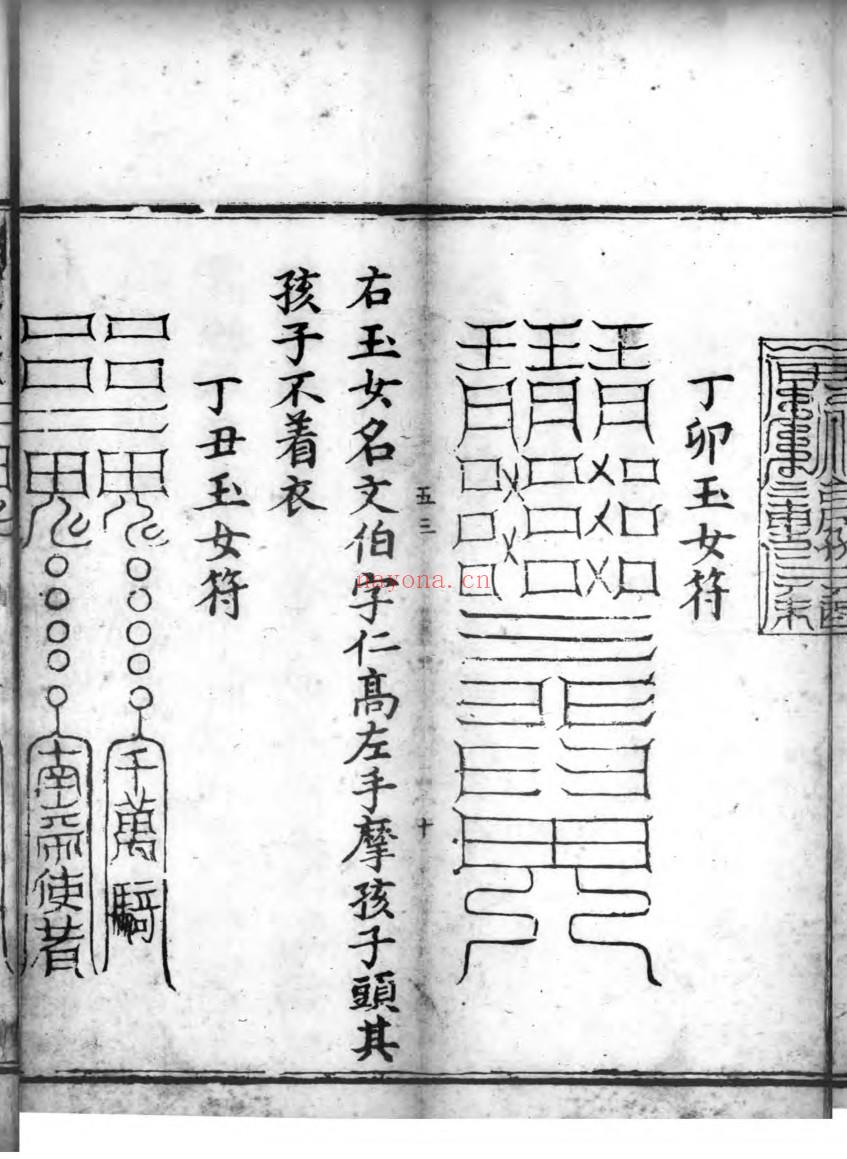 丁卯玉女符
五三
十
右玉女名文伯字仁高左手摩孩子頭其
孩子不着衣
丁丑玉女符
千萬騎
使者
nayona.cn